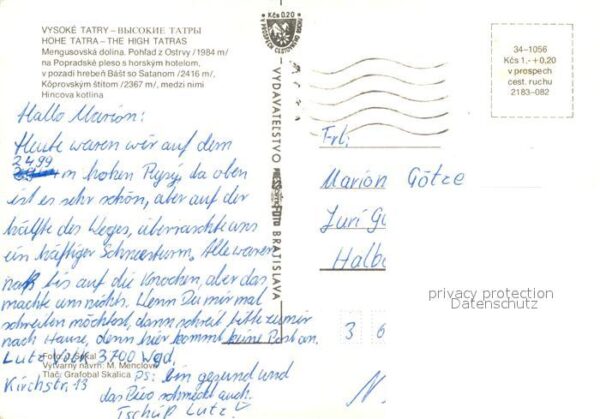 VYSOKÉ TATRY – ВЫСОКИЕ ТАТРЫ
HOHE TATRA – THE HIGH TATRAS
Mengusovská dolina. Pohľad z Ostrvy /1984 m/
na Popradské pleso s horským hotelom,
v pozadí hrebeň Bášt so Satanom /2416 m/,
Kôprovským štítom /2367 m/, medzi nimi
Hincova kotlina
Hallo Marion:
Heute waren wir auf dem
2499
m hohen Rysy, da oben
ist es sehr schön, aber auf der
hälfte des Weges, überraschte uns
ein häftiger Schneesturm. Alle waren
naß bis auf die Knochen, aber das
machte uns nichts. Wenn Du mir mal
schreiben möchtest, dann schreib bitte zu mir
nach Hause, denn hier kommt keine Post an.
Lutz Volk 3700 Wgd.
Kirchstr. 13
PS: bin gesund und
das Bier schmeckt auch.
Tschüß Lutz
Výtvarný návrh: M. Menclová
Tlač: Grafobal Skalica
Kčs 0.20
VYDAVATEĽSTVO
BRATISLAVA
34–1056
Kčs 1,- + 0,20
v prospech
cest. ruchu
2183–082
Frl.
Marion Götze
Juri G
Halb
3 6
N.
privacy protection
Datenschutz